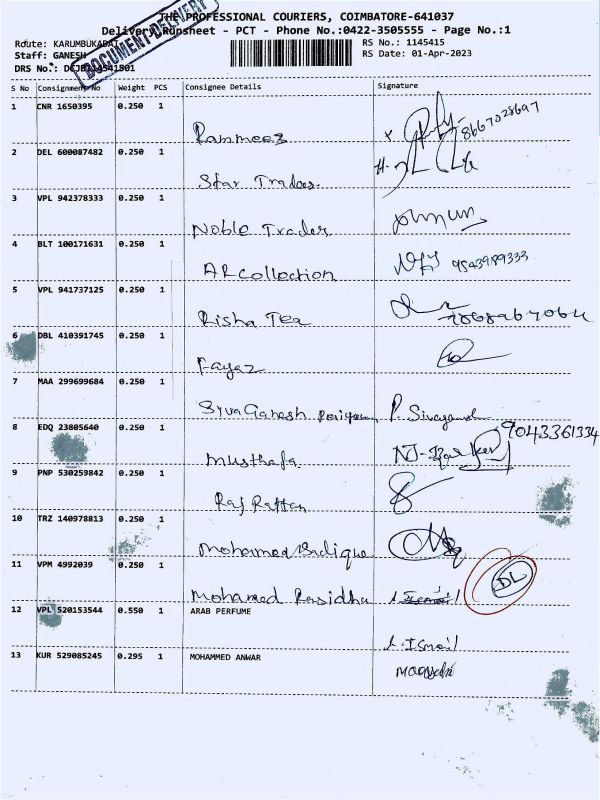 THE PROFESSIONAL COURIERS, COIMBATORE-641037
Delivery Runsheet - PCT - Phone No.:0422-3505555 - Page No.:1
Route: KARUMBUKADAI RS No.: 1145415
Staff: GANESH RS Date: 01-Apr-2023
DRS No.:
DOCUMENT DELIVERY
S No Consignment No Weight PCS Consignee Details Signature
1 CNR 1650395 0.250 1
Rammees x 8667028697
2 DEL 600087482 0.250 1
Star Traders
3 VPL 942378333 0.250 1
Noble Trader
4 BLT 100171631 0.250 1
AR collection 9543989333
5 VPL 941737125 0.250 1
Risha Tea
6 DBL 410391745 0.250 1
Fayaz
7 MAA 299699684 0.250 1
Siva Ganesh P. Sivaganesh
8 EDQ 23805640 0.250 1
Musthafa 9043361334
9 PNP 530259842 0.250 1
Raj Rattan
10 TRZ 140978813 0.250 1
Mohamed Sidique
11 VPM 4992039 0.250 1
Mohamed Rasidha DL
12 VPL 520153544 0.550 1 ARAB PERFUME
Ismail
13 KUR 529085245 0.295 1 MOHAMMED ANWAR